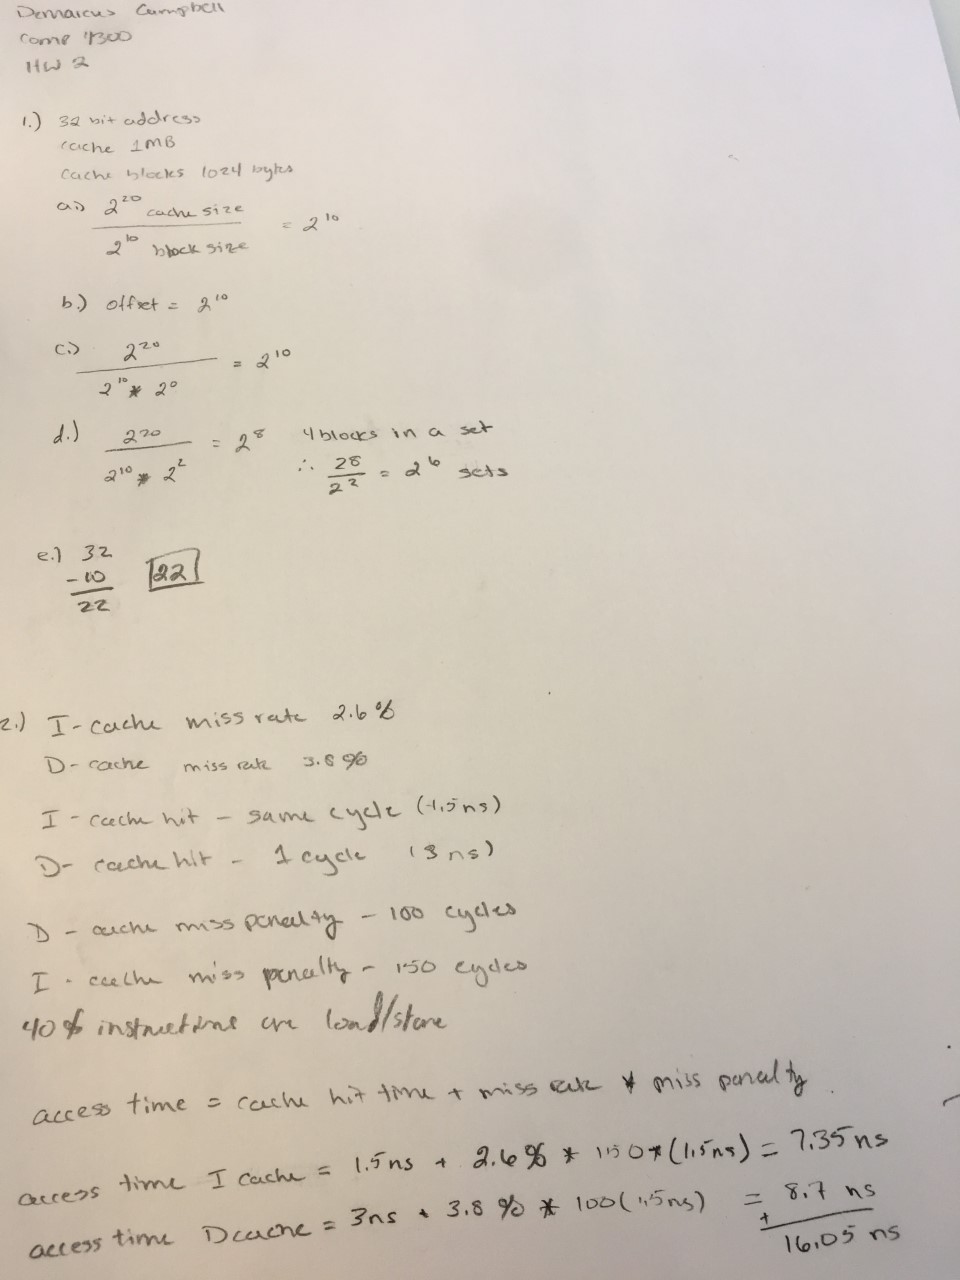 Demarcus Campbell
Comp 4300
HW 2
1.) 32 bit address
cache 1MB
Cache blocks 1024 bytes
a.) 2^20 cache size / 2^10 block size = 2^10
b.) offset = 2^10
c.) 2^20 / 2^10 * 2^0 = 2^10
d.) 2^20 / 2^10 * 2^2 = 2^8 4 blocks in a set
∴ 2^8 / 2^2 = 2^6 sets
e.) 32
- 10 22
22
2.) I-cache miss rate 2.6%
D-cache miss rate 3.8%
I-cache hit - same cycle (1.5ns)
D-cache hit - 1 cycle (3ns)
D-cache miss penalty - 100 cycles
I-cache miss penalty - 150 cycles
40% instructions are load/store
access time = cache hit time + miss rate * miss penalty
access time I cache = 1.5ns + 2.6% * 150 * (1.5ns) = 7.35ns
access time Dcache = 3ns + 3.8% * 100(1.5ns) = 8.7 ns
+ 16.05 ns